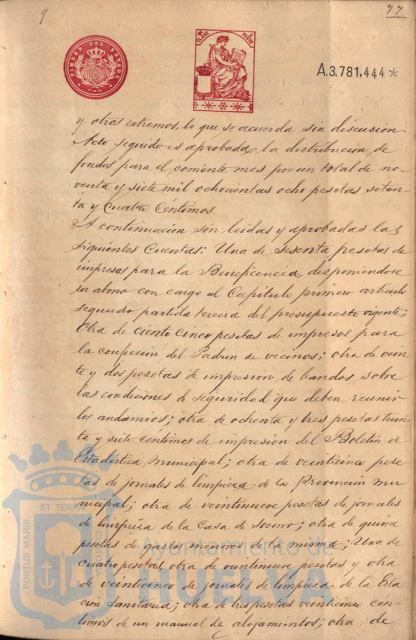 9
77
A.3.781,444*
y otros extremos, lo que se acuerda sin discusion.
Acto seguido es aprobada la distribucion de
fondos para el corriente mes por un total de no-
venta y siete mil ochocientas ocho pesetas seten-
ta y cuatro Céntimos.
A continuacion son leidas y aprobadas las
siguientes Cuentas: Una de sesenta pesetas de
impresos para la Beneficencia disponiendose
su abono con cargo al Capitulo primero articulo
segundo partida tercera del presupuesto vigente;
Otra de ciento cinco pesetas de impresos para
la confeccion del Padron de vecinos; otra de vein-
te y dos pesetas de impresion de bandos sobre
las condiciones de seguridad que deben reunir
los andamios; otra de ochenta y tres pesetas trein-
ta y siete centimos de impresion del Boletin de
Estadistica Municipal; otra de veinticinco pese-
tas de jornales de limpieza de la Prevencion mu-
nicipal; otra de veintinueve pesetas de jornales
de limpieza de la Casa de Socorro; otra de quince
pesetas de gastos menores de la misma; Una de
cuatro pesetas, otra de veintinueve pesetas y otra
de veinticinco de jornales de limpieza de la Esta-
cion Sanitaria; otra de tres pesetas veinticinco cen-
timos de un manual de alojamientos; otra de
PORTUS MARIS ET TERRAE
Ayuntamiento de
HUELVA